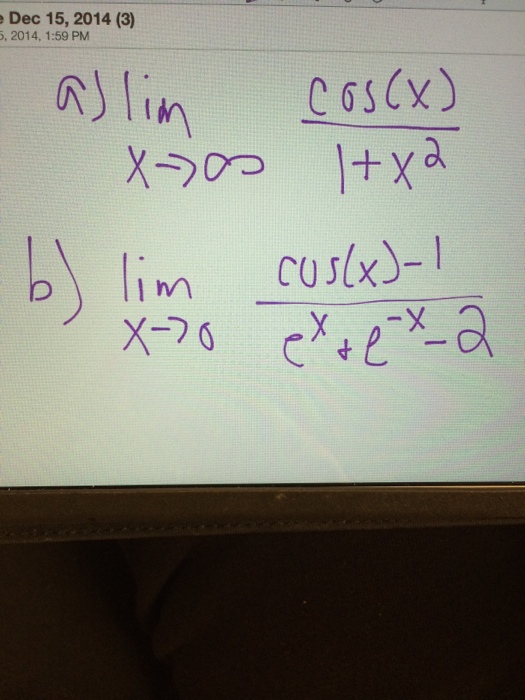 e Dec 15, 2014 (3)
5, 2014, 1:59 PM
a) lim x→∞ cos(x) / 1+x²
b) lim x→0 cos(x)-1 / eˣ+e⁻ˣ-2